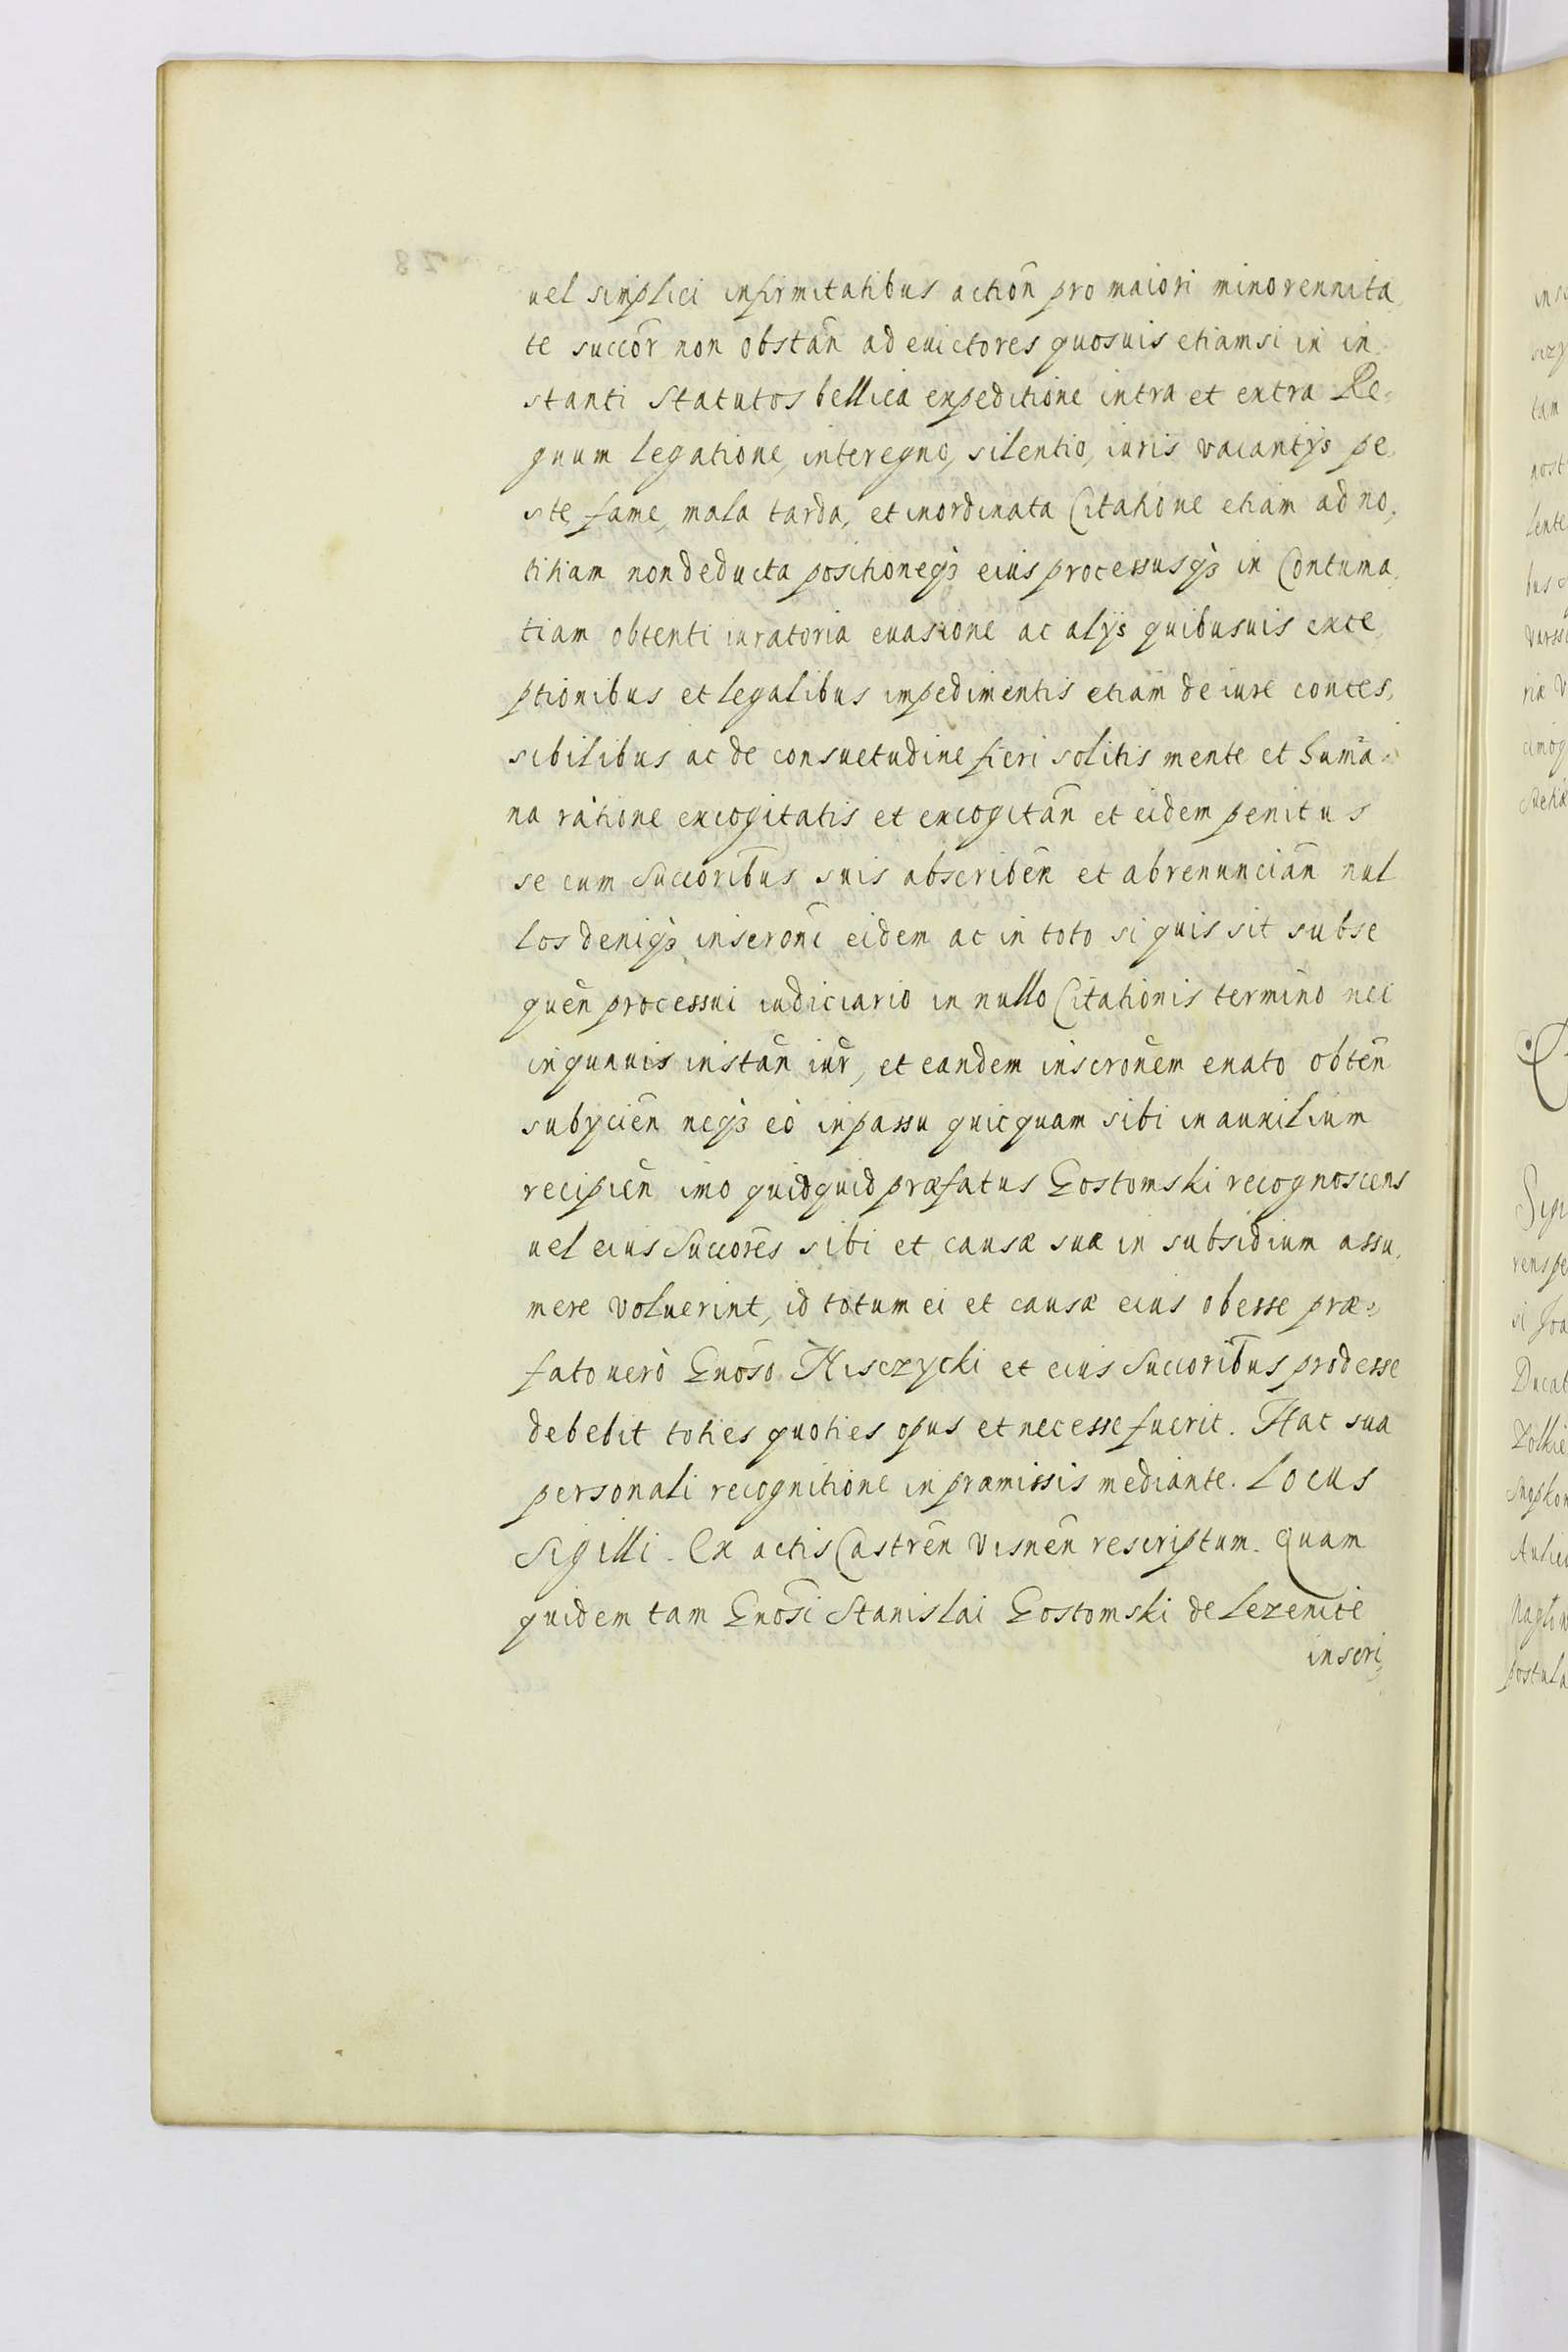 uel simplici infirmitatibus action̄ pro maiori minorennita,
te succor̄ non obstan̄ ad euictores quosuis etiamsi in in,
stanti statutos bellica expeditione intra et extra Re,
gnum legatione, interegno, silentio, iuris vacantijs pe,
ste fame, mala tarda, et inordinata Citatione etiam ad no,
titiam non deducta positioneqꝫ eius processusqꝫ in Contuma,
tiam obtenti iuratoria euasione ac alijs quibusuis exce,
ptionibus et legalibus impedimentis etiam de iure conces,
sibilibus ac de consuetudine fieri solitis mente et huma,
na ratione excogitatis et excogitan̄ et eidem penitus
se cum Succorib̄us suis abscriben̄ et abrenuncian̄ nul
los deniqꝫ inscron̄i eidem ac in toto si quis sit subse
quen̄ processui iudiciario in nullo Citationis termino nec
in quauis instan̄ iur̄, et eandem inscron̄em enato obten̄
subijcien̄ neqꝫ eò in passu quicquam sibi in auxilium
recipien̄ imo quidquid præfatus Gostomski recognoscens
uel eius Succor̄es sibi et causæ suæ in subsidium assu,
mere voluerint, id totum ei et causæ eius obesse præ,
fato uerò Gnos̄o Hisczycki et eius Succorib̄us prodesse
debebit toties quoties opus et necesse fuerit. Hac sua
personali recognitione in præmissis mediante. Locus
Sigilli. Ex actis Castren̄ Visnen̄ rescriptum. Quam
quidem tam Gnos̄i Stanislai Gostomski de Lezenicè
inscri,